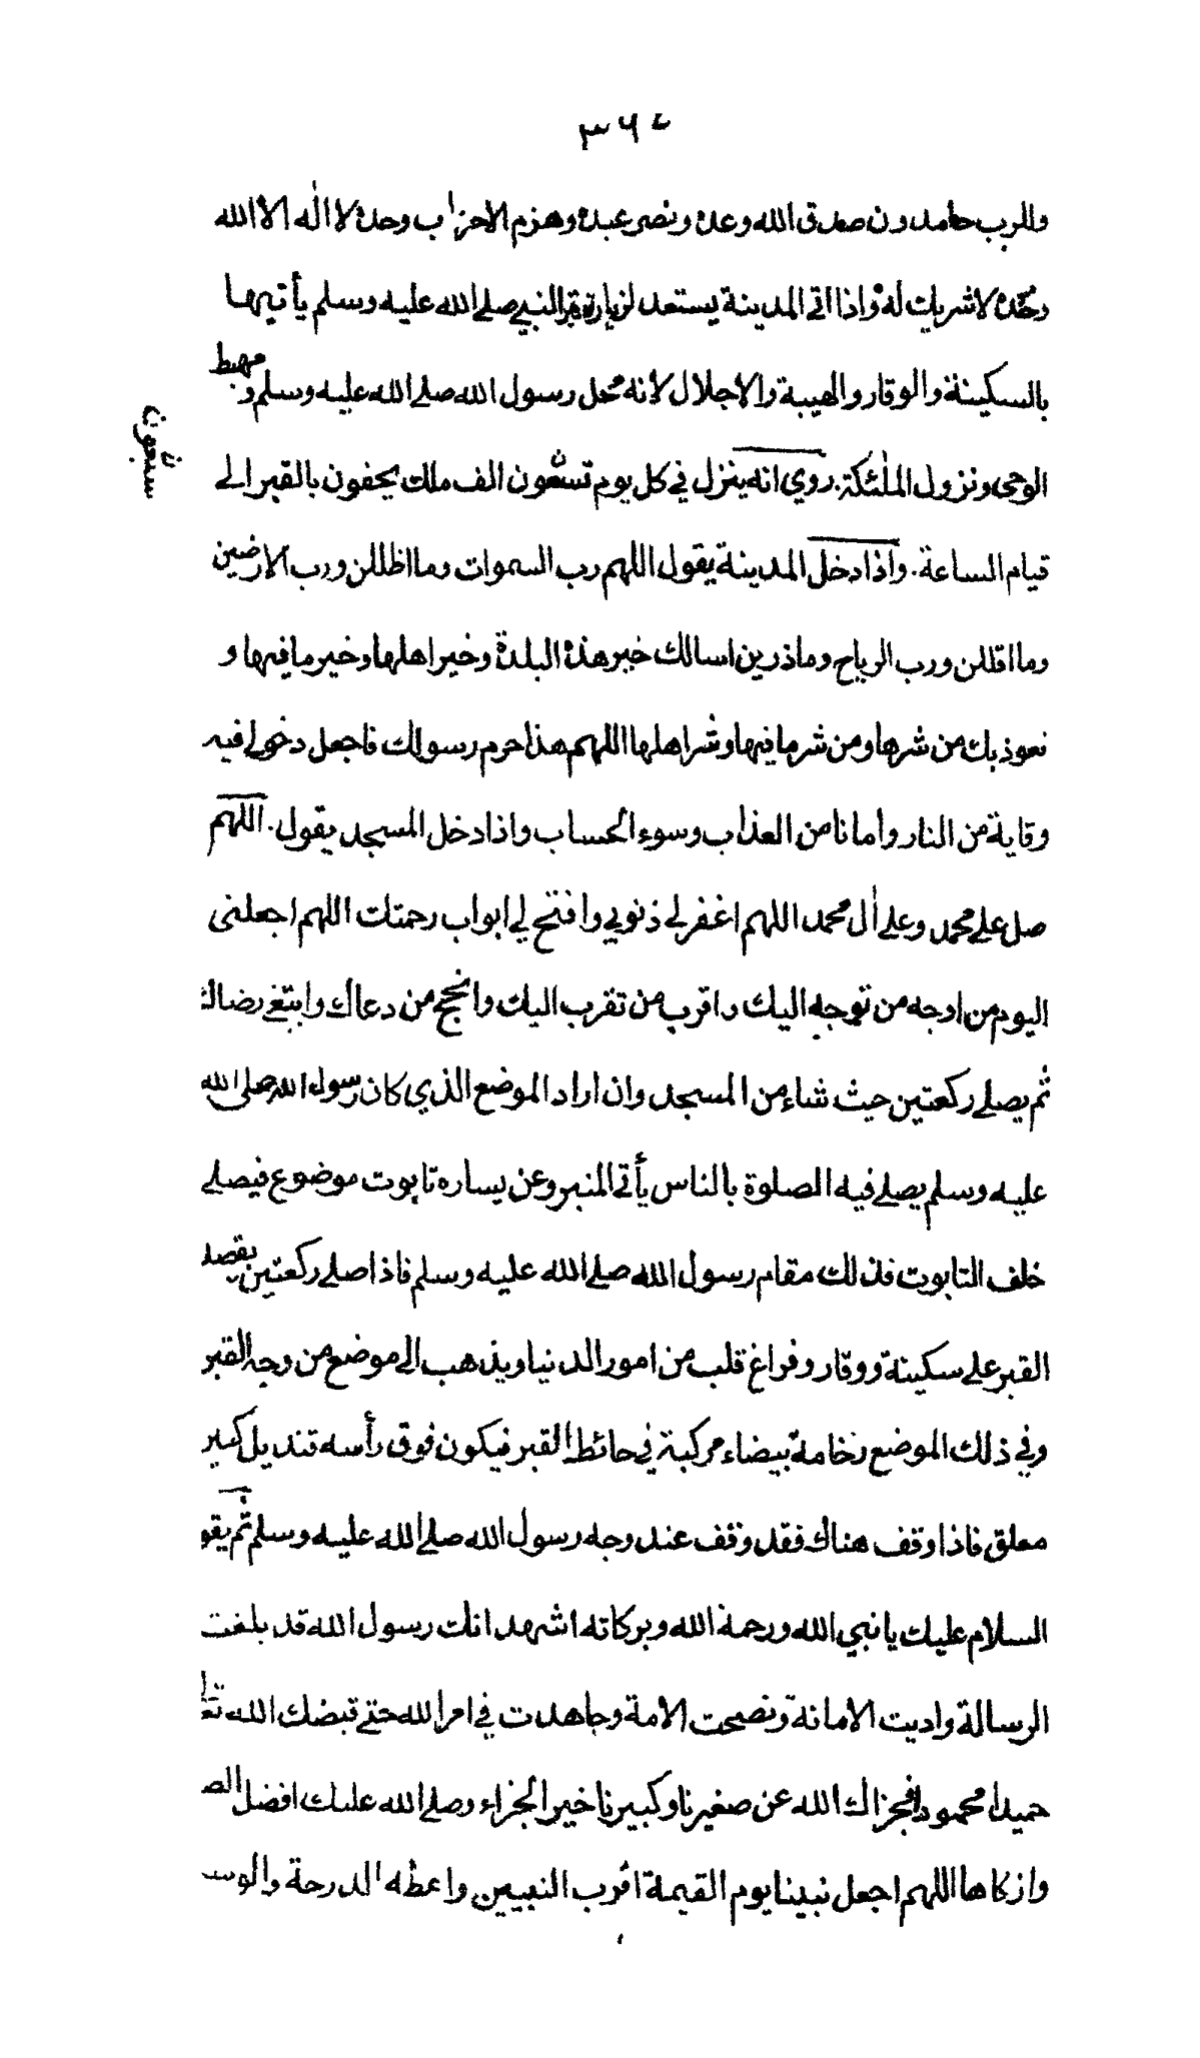 ٣٦٧
وللرب حامدون صدق الله وعده ونصر عبده وهزم الاحزاب وحده لا اله الا الله
وحده لا شريك له واذا اتى المدينة يستعد لزيارة قبر النبي صلے الله عليه وسلم يأتيها
بالسكينة والوقار والهيبة والاجلال لانه محل رسول الله صلے الله عليه وسلم و مهبط
الوحى ونزول الملئكة. روي انه ينزل في كل يوم تسعون الف ملك يحفون بالقبر الى
سبعون ن
قيام الساعة. واذا دخل المدينة يقول اللهم رب السموات وما اظللن ورب الارضين
وما اقللن ورب الرياح وما ذرين اسالك خير هذه البلدة وخير اهلها وخير ما فيها و
نعوذ بك من شرها ومن شر ما فيها وشر اهلها اللهم هذا حرم رسولك فاجعل دخولي فيه
وقاية من النار وأمانا من العذاب وسوء الحساب واذا دخل المسجد يقول. اللهم
صل على محمد وعلى أل محمد اللهم اغفر لي ذنوبي وافتح لي ابواب رحمتك اللهم اجعلنى
اليوم من اوجه من توجه اليك واقرب من تقرب اليك وانجح من دعاك وابتغى رضاك
ثم يصلے ركعتين حيث شاء من المسجد وان اراد الموضع الذي كان رسول الله صلى الله
عليه وسلم يصلے فيه الصلوة بالناس يأتى المنبر وعن يساره تابوت موضوع فيصلے
خلف التابوت فذلك مقام رسول الله صلے الله عليه وسلم فاذا صلے ركعتين يقصد
القبر على سكينة ووقار وفراغ قلب من امور الدنيا ويذهب الى موضع من وجه القبر
وفي ذلك الموضع رخامة بيضاء مركبة في حائط القبر فيكون فوق رأسه قنديل كبير
معلق فاذا وقف هناك فقد وقف عند وجه رسول الله صلے الله عليه وسلم ثم يقو
السلام عليك يا نبي الله ورحمة الله وبركاته اشهد انك رسول الله قد بلغت
الرسالة واديت الامانة ونصحت الامة وجاهدت في امر الله حتى قبضك الله تعا
حميدا محمودا فجزاك الله عن صغيرنا وكبيرنا خير الجزاء وصلے الله عليك افضل الص
وازكاها اللهم اجعل نبينا يوم القيمة اقرب النبيين واعطه الدرجة والوس